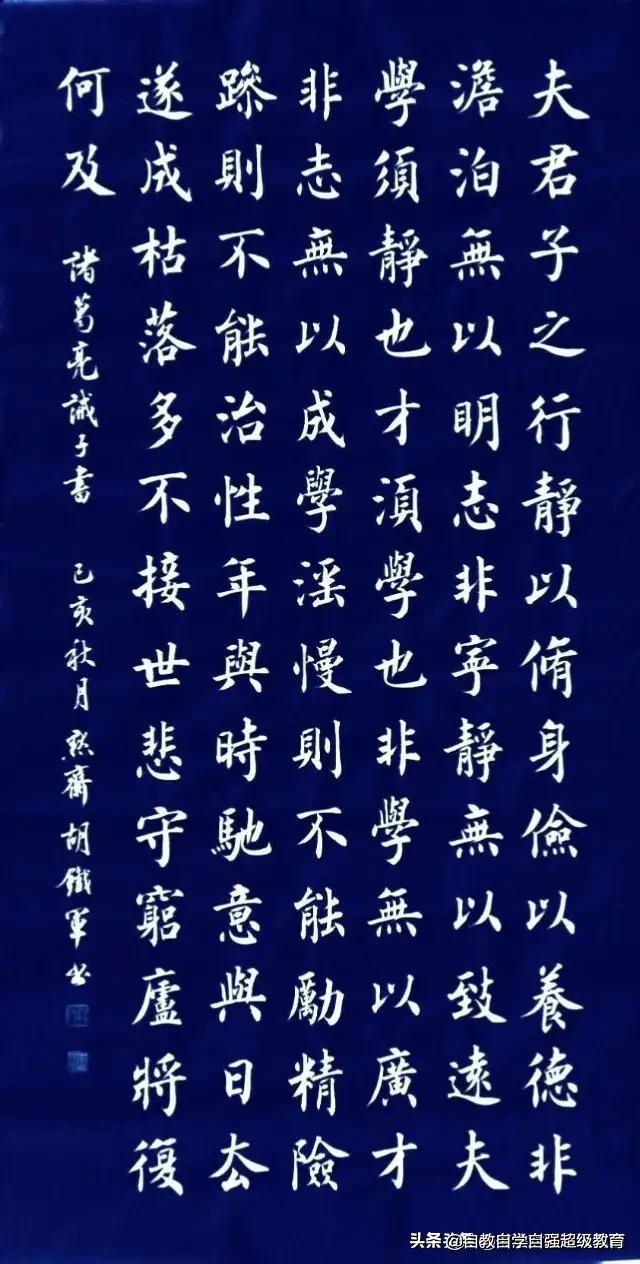 夫君子之行靜以脩身儉以養德非
澹泊無以明志非寧靜無以致遠夫
學須靜也才須學也非學無以廣才
非志無以成學滛慢則不能勵精險
躁則不能治性年與時馳意與日去
遂成枯落多不接世悲守窮廬將復
何及 諸葛亮誡子書 己亥秋月 齋胡鐵軍书
头条 @自教自学自强超级教育